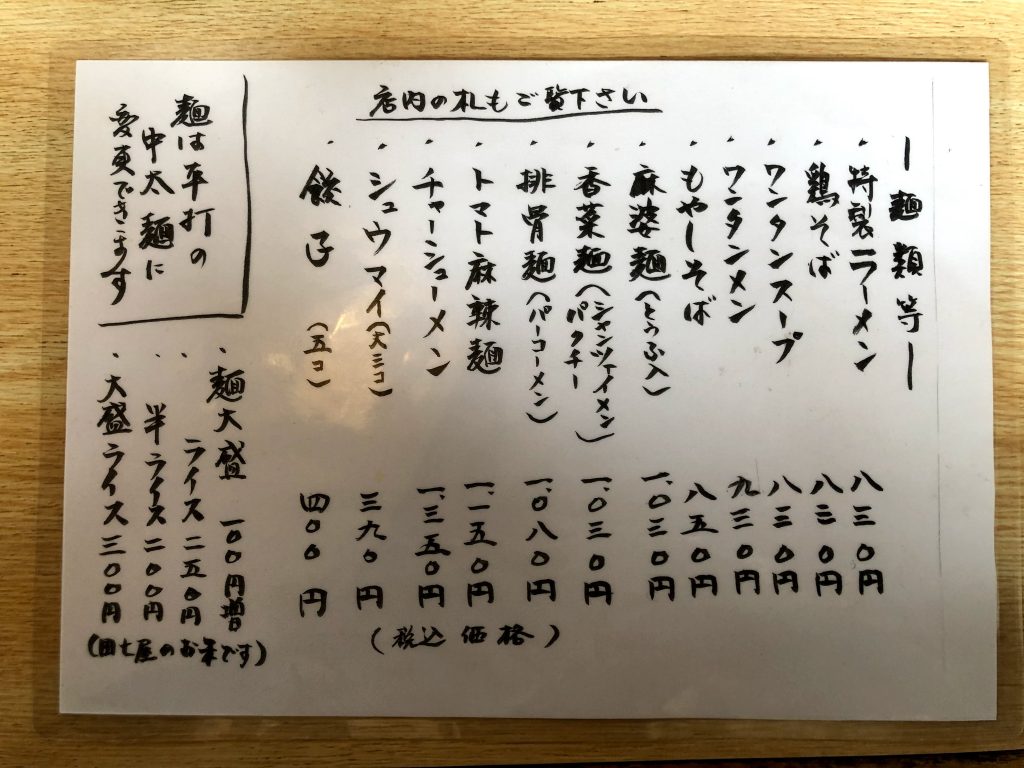 店内の札もご覧下さい
ー麺類等ー
・特製ラーメン 八三〇円
・鶏そば 八三〇円
・ワンタンスープ 八三〇円
・ワンタンメン 九三〇円
・もやしそば 八五〇円
・麻婆麺(とうふ入) 一、〇三〇円
・香菜麺(シャンツァイメン)パクチー 一、〇三〇円
・排骨麺(パーコーメン) 一、〇八〇円
・トマト麻辣麺 一、一五〇円
・チャーシューメン 一、三五〇円
・シュウマイ(大三コ) 三九〇円
・餃子(五コ) 四〇〇円
(税込価格)
麺は平打の
中太麺に
変更できます
・麺大盛 一〇〇円増
・ライス 二五〇円
・半ライス 二〇〇円
・大盛ライス 三〇〇円
(田七屋のお米です)